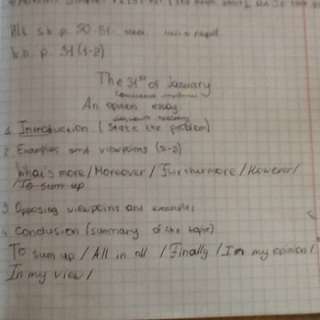 s.b. p. 50-51
p. 31 (1-2)
The 31st of January
An opinion essay
1. Introduction (State the problem)
2. Examples and viewpoints (2-3)
What's more / Moreover / Furthermore / However /
To sum up
3 Opposing viewpoints and examples
4. Conclusion (summary of the topic)
To sum up / All in all / Finally / In my opinion /
In my view /